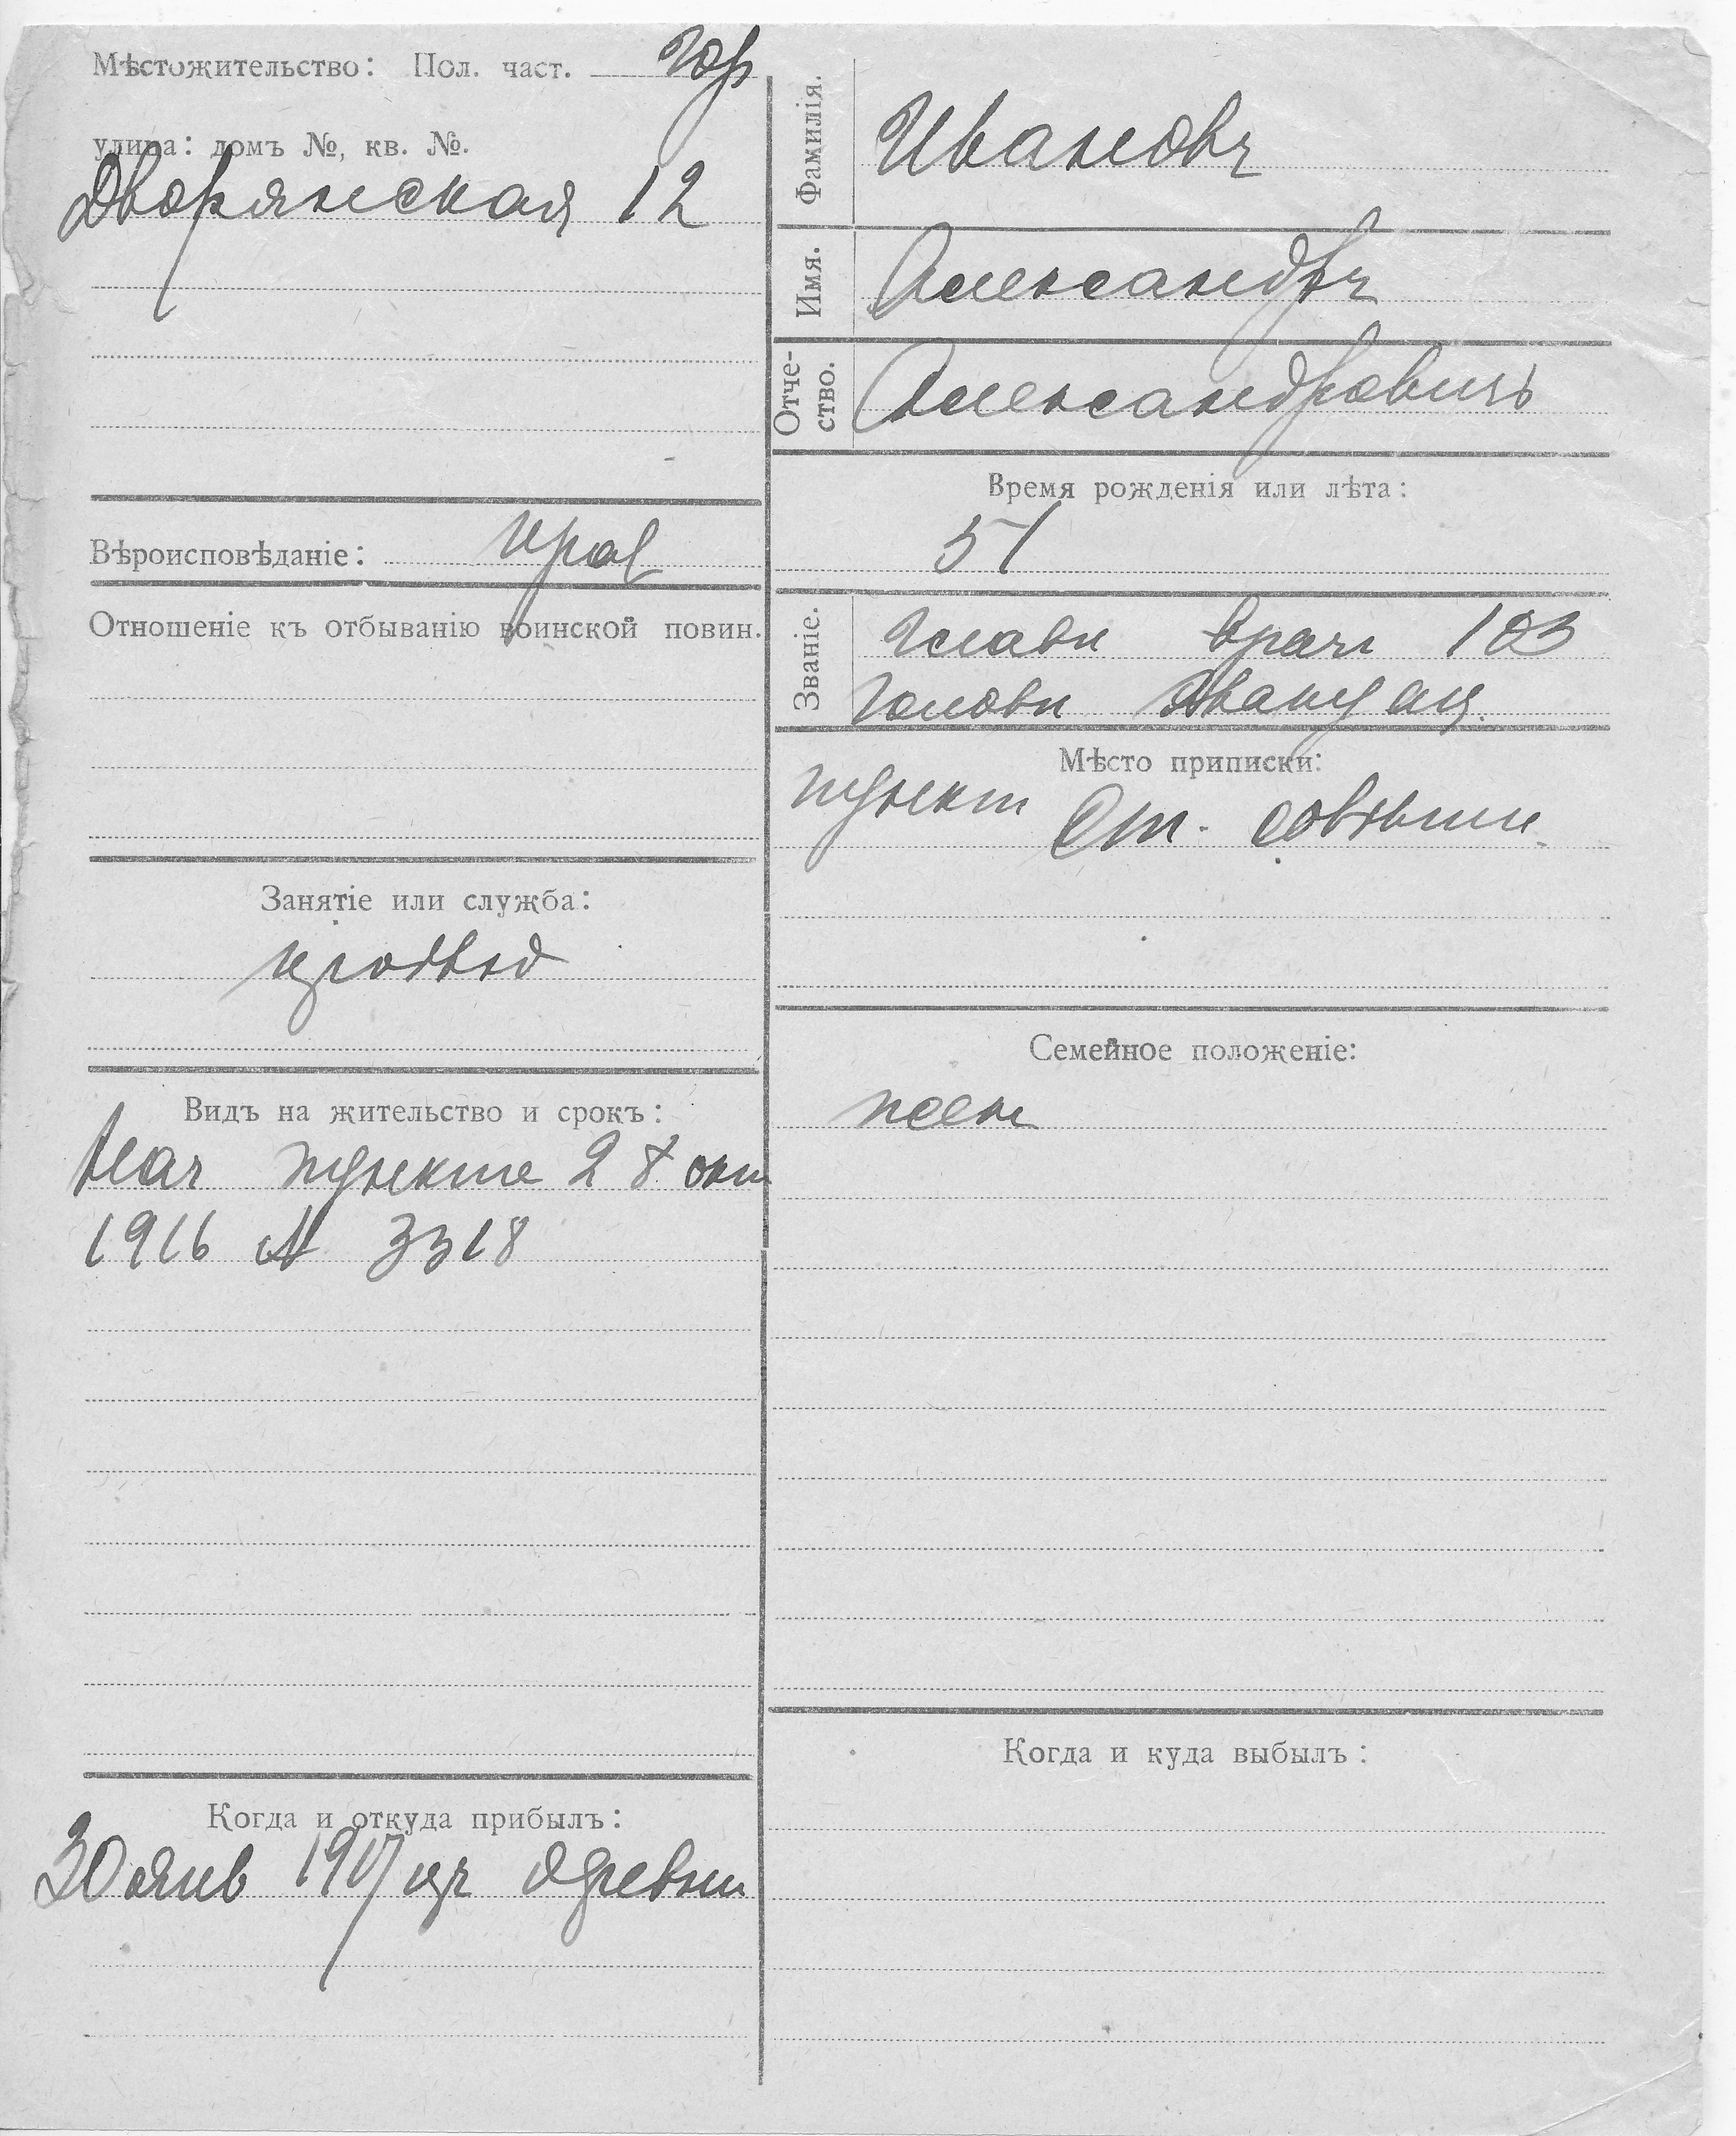 Мѣстожительство: Пол. част. Гор
улица: домъ №, кв. №.
Дворянская 12
Вѣроисповѣданіе: прав
Отношеніе къ отбыванію воинской повин.
Занятіе или служба:
Видъ на жительство и срокъ:
Нач пункта 28 окт
1916 № 3318
Когда и откуда прибылъ:
30 янв 1917 изъ
Фамилія. Ивановъ
Имя. Александръ
Отче-
ство. Александровичъ
Время рожденія или лѣта:
51
Званіе. Главн врачъ 103
Головн Эвакуац.
Мѣсто приписки:
пункт Ст. Совѣтн.
Семейное положеніе:
Когда и куда выбылъ: